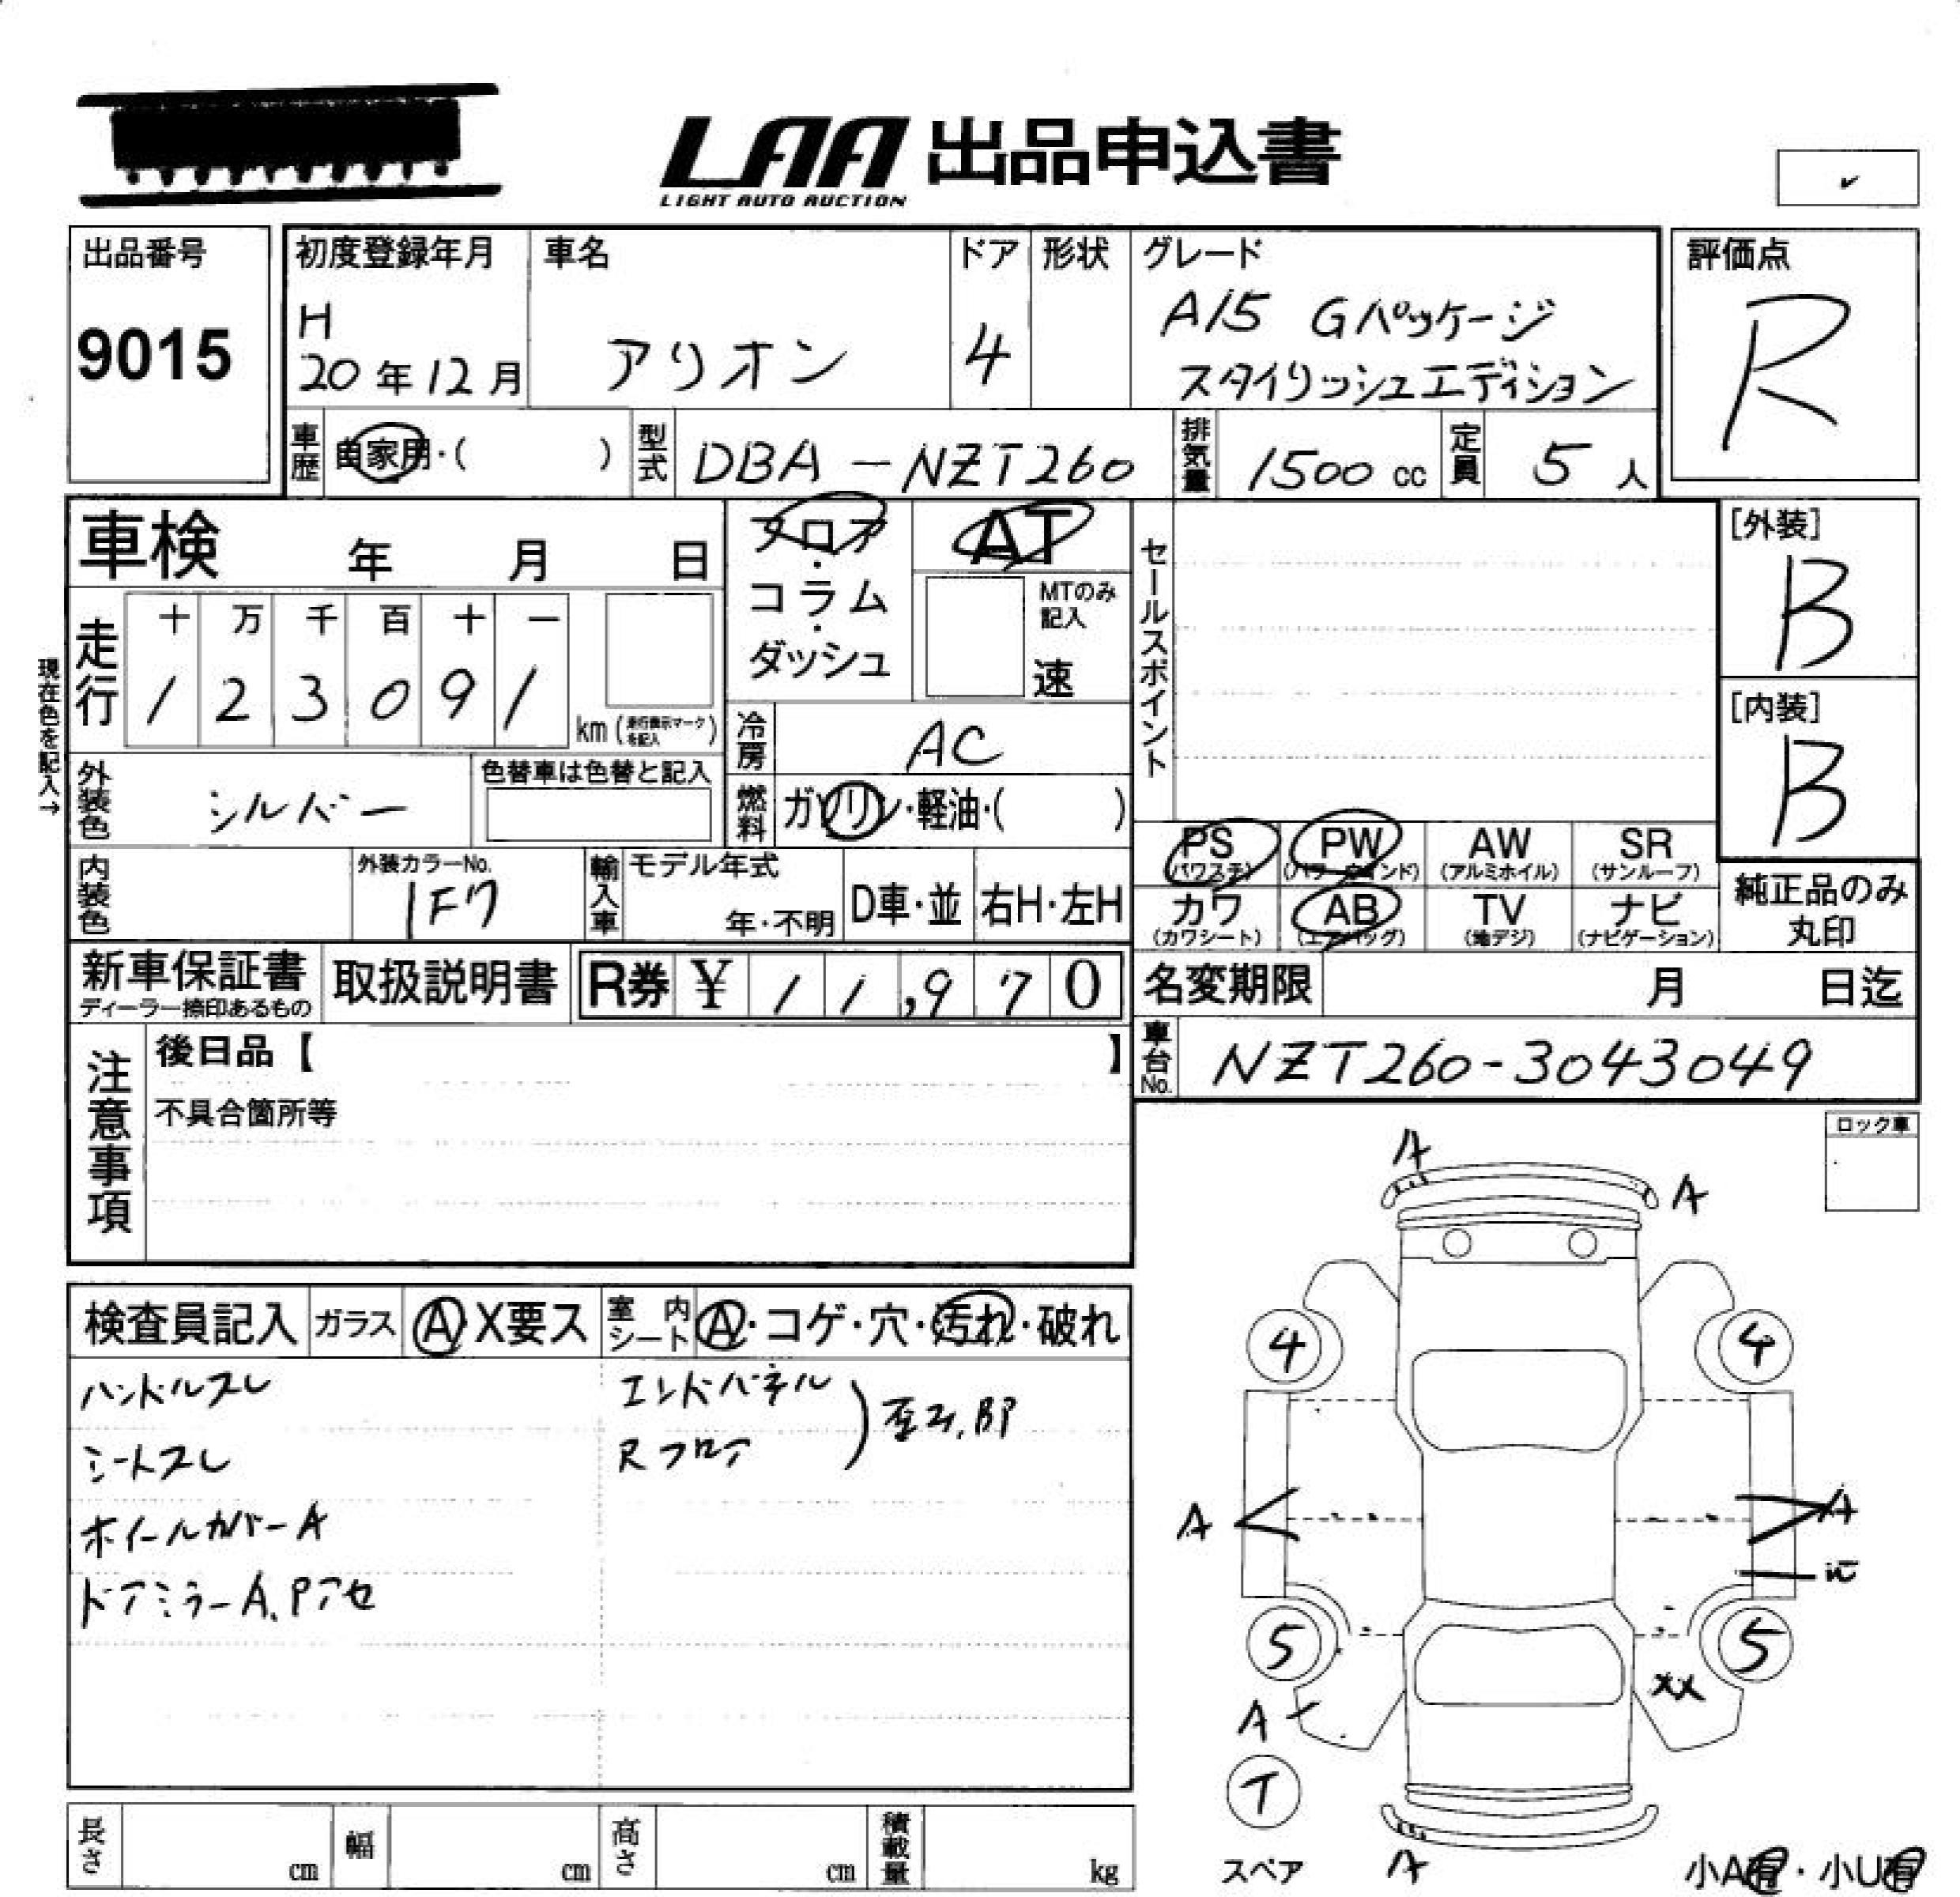 LAA 出品申込書
LIGHT AUTO AUCTION
出品番号
9015
初度登録年月
H
20年12月
車名
アリオン
ドア
4
形状
グレード
A15 Gパッケージ
スタイリッシュエディション
評価点
R
車歴
自家用・( )
型式
DBA-NZT260
排気量
1500cc
定員
5人
車検 年 月 日
フロア・コラム・ダッシュ
AT
MTのみ記入
速
セールスポイント
[外装]
B
[内装]
B
現在色を記入→
走行
十 万 千 百 十 一
1 2 3 0 9 1
km (走行表示マークを記入)
冷房
AC
外装色
シルバー
色替車は色替と記入
燃料
ガソリン・軽油・( )
PS (パワステ)
PW (パワーウインド)
AW (アルミホイル)
SR (サンルーフ)
カワ (カワシート)
AB (エアバッグ)
TV (地デジ)
ナビ (ナビゲーション)
純正品のみ丸印
内装色
外装カラーNo.
1F7
輸入車
モデル年式
年・不明
D車・並
右H・左H
新車保証書
ディーラー捺印あるもの
取扱説明書
R券 ¥ 11,970
名変期限 月 日迄
車台No.
NZT260-3043049
注意事項
後日品【 】
不具合箇所等
ロック車
検査員記入
ガラス
A・X要ス
室内シート
A・コゲ・穴・汚れ・破れ
ハンドルスレ
シートスレ
ホイールカバーA
ドアミラーA、Pアセ
エンドパネル
Rフロア
歪み、BP
A
A
4
4
A
A
5
5
XX
A
T
スペア
A
小A有・小U有
長さ cm
幅 cm
高さ cm
積載量 kg